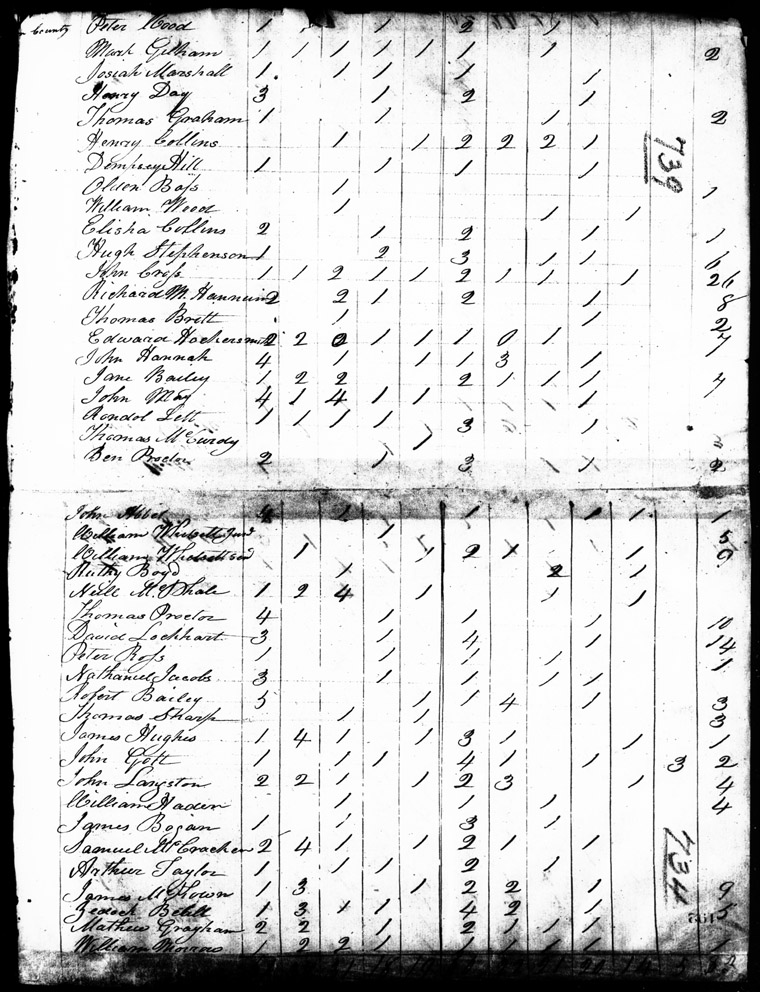 County Peter Wood 1 1 2 1
Mark Gilham 1 1 1 1 1 1 1 2
Josiah Marshall 1 1 1 1 1
Henry Day 3 1 2 1
Thomas Graham 1 1 1 1 2
Henry Collins 1 1 2 2 2 1
Dempsey Hill 1 1 1 1
739
Olden Bass 1 1
William Wood 1 1 1
Elisha Collins 2 1 2 1 1
Hugh Stephenson 1 2 3 1 1
John Cross 1 1 2 1 1 2 1 1 1 1 2
Richard M. 2 2 1 2 1 8
Thomas Brett 1 1 2
Edward 2 2 2 1 1 1 0 1 1 7
John Hannah 4 1 1 1 3 1 1
Jane Bailey 1 2 2 2 1 1 1 7
John May 4 1 4 1 1 1
Randol Lett 1 1 1 1 1 3 1
Thomas McCurdy 1
Ben Proctor 2 1 3 1 1 2
John Abbet 1 1 1 1 1
William 1 5
William 1 1 2 1 1 9
Ruthy Boyd 1 1 2 1
Neill McPhale 1 2 4 1 1 1 1
Thomas Proctor 4 1 1 1 10
David Lockhart 3 1 4 1 14
Peter Ross 1 1 1 1 1 1
Nathaniel Jacobs 3 1 1 1 1
Robert Bailey 5 1 1 4 1 3
Thomas Sharp 1 1 3
James Hughes 1 4 1 1 3 1 1 1
John Gott 1 1 1 4 1 1 3 2
John Langston 2 2 1 1 2 3 1 4
William Haden 1 1 1 4
James Bogan 1 1 3 1
Samuel McCracken 2 4 1 1 2 1 1
734
Arthur Taylor 1 1 1 1 2 1
James McKown 1 3 1 2 2 1 9
Zedock 1 3 1 1 4 2 1 5
Mathew Grayham 2 2 1 2 1 1 1
William Morrow 1 2 2 1 1 1 1 1 1